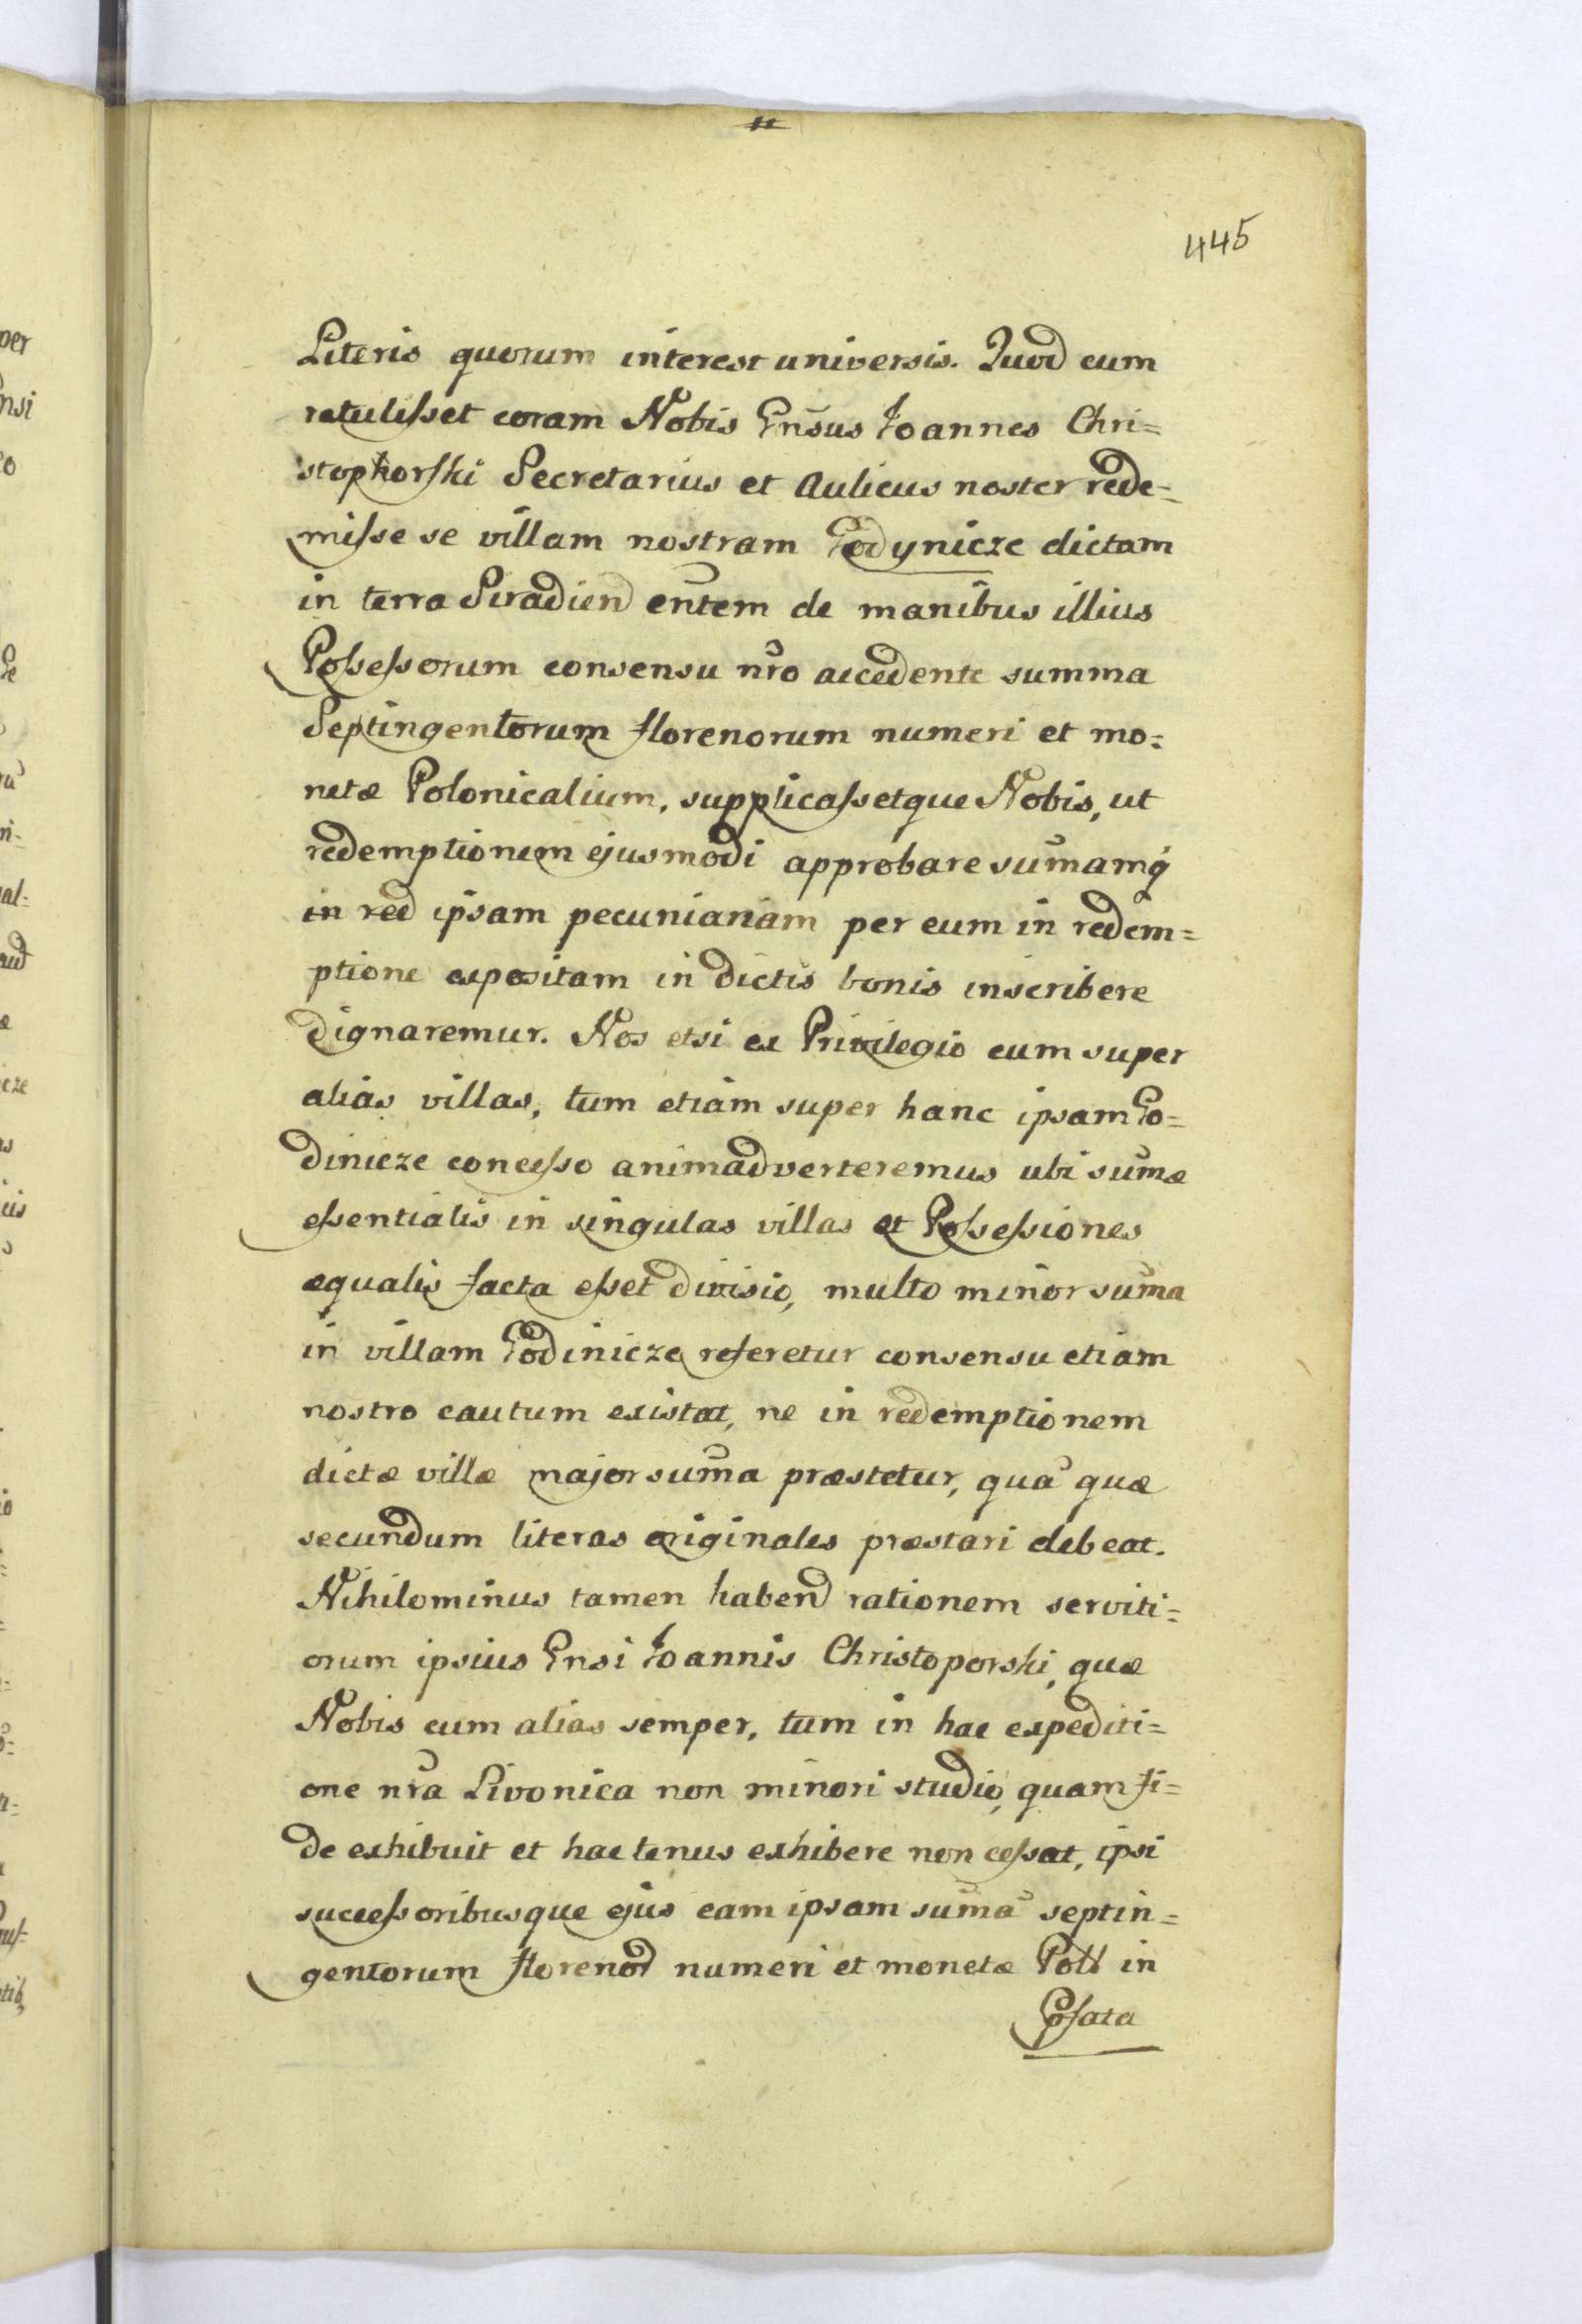 445
Literis quorum interest universis. Quod cum
retulisset coram Nobis Gnsus Joannes Chri=
stophorski Secretarius et Aulicus noster rede=
misse se villam nostram Godynicze dictam
in terra Siradien entem de manibus illius
Possessorum consensu nro accedente summa
Septingentorum florenorum numeri et mo=
netæ Polonicalium, supplicassetque Nobis, ut
redemptionem ejusmodi approbare sumamq
in red ipsam pecuniariam per eum in redem=
ptione expositam in dictis bonis inscribere
dignaremur. Nos etsi ex Privilegio cum super
alias villas, tum etiam super hanc ipsam Go=
dinicze concesso animadverteremus ubi sumæ
essentialis in singulas villas et Possessiones
æqualis facta esset divisio, multo minor suma
in villam Godinicze referetur consensu etiam
nostro cautum existat, ne in redemptionem
dictæ villæ major suma præstetur, qua quæ
secundum literas originales præstari debeat.
Nihilominus tamen habend rationem serviti=
orum ipsius Gnsi Joannis Christoporski, quæ
Nobis cum alias semper, tum in hac expediti=
one nra Livonica non minori studio, quam fi=
de exhibuit et hactenus exhibere non cessat, ipsi
successoribusque ejus eam ipsam suma septin=
gentorum florenor numeri et monetæ Poll in